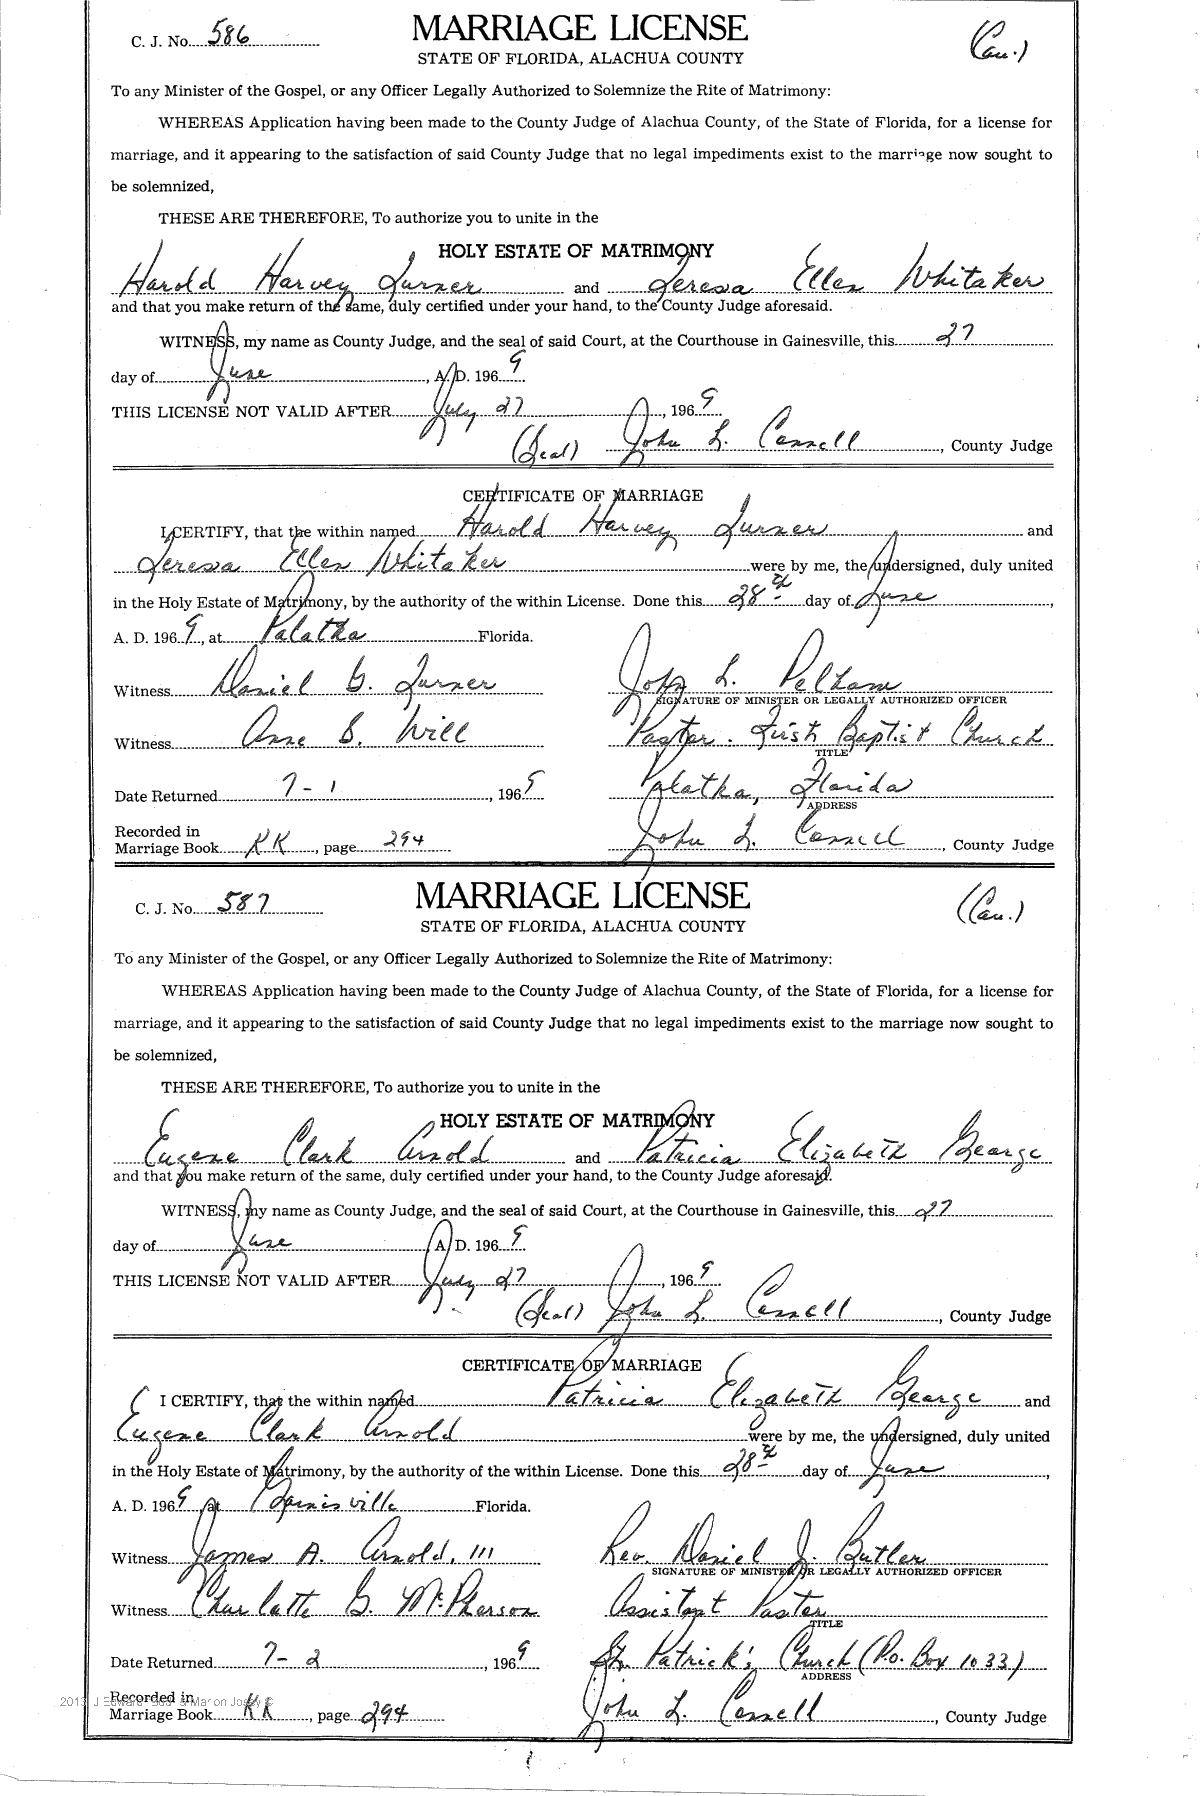 C. J. No. 586
MARRIAGE LICENSE
(Cau.)
STATE OF FLORIDA, ALACHUA COUNTY
To any Minister of the Gospel, or any Officer Legally Authorized to Solemnize the Rite of Matrimony:
WHEREAS Application having been made to the County Judge of Alachua County, of the State of Florida, for a license for
marriage, and it appearing to the satisfaction of said County Judge that no legal impediments exist to the marriage now sought to
be solemnized,
THESE ARE THEREFORE, To authorize you to unite in the
HOLY ESTATE OF MATRIMONY
Harold Harvey Turner and Teresa Ellen Whitaker
and that you make return of the same, duly certified under your hand, to the County Judge aforesaid.
WITNESS, my name as County Judge, and the seal of said Court, at the Courthouse in Gainesville, this 27
day of June, A. D. 1969
THIS LICENSE NOT VALID AFTER July 27, 1969
(Seal) John L. Connell, County Judge
CERTIFICATE OF MARRIAGE
I CERTIFY, that the within named Harold Harvey Turner and
Teresa Ellen Whitaker were by me, the undersigned, duly united
in the Holy Estate of Matrimony, by the authority of the within License. Done this 28th day of June,
A. D. 1969, at Palatka Florida.
Witness Daniel G. Turner John L. Pelham
SIGNATURE OF MINISTER OR LEGALLY AUTHORIZED OFFICER
Witness Anne S. Will Pastor - First Baptist Church
TITLE
Date Returned 7-1, 1969 Palatka, Florida
ADDRESS
Recorded in
Marriage Book KK, page 294 John L. Connell, County Judge
C. J. No. 587
MARRIAGE LICENSE
(Cau.)
STATE OF FLORIDA, ALACHUA COUNTY
To any Minister of the Gospel, or any Officer Legally Authorized to Solemnize the Rite of Matrimony:
WHEREAS Application having been made to the County Judge of Alachua County, of the State of Florida, for a license for
marriage, and it appearing to the satisfaction of said County Judge that no legal impediments exist to the marriage now sought to
be solemnized,
THESE ARE THEREFORE, To authorize you to unite in the
HOLY ESTATE OF MATRIMONY
Eugene Clark Arnold and Patricia Elizabeth George
and that you make return of the same, duly certified under your hand, to the County Judge aforesaid.
WITNESS, my name as County Judge, and the seal of said Court, at the Courthouse in Gainesville, this 27
day of June A. D. 1969
THIS LICENSE NOT VALID AFTER July 27, 1969
(Seal) John L. Connell, County Judge
CERTIFICATE OF MARRIAGE
I CERTIFY, that the within named Patricia Elizabeth George and
Eugene Clark Arnold were by me, the undersigned, duly united
in the Holy Estate of Matrimony, by the authority of the within License. Done this 28th day of June,
A. D. 1969 at Gainesville Florida.
Witness James A. Arnold, III Rev. Daniel J. Butler
SIGNATURE OF MINISTER OR LEGALLY AUTHORIZED OFFICER
Witness Charlotte G. McPherson Assistant Pastor
TITLE
Date Returned 7-2, 1969 St. Patrick's Church (P.O. Box 1033)
ADDRESS
Recorded in
Marriage Book KK, page 294 John L. Connell, County Judge